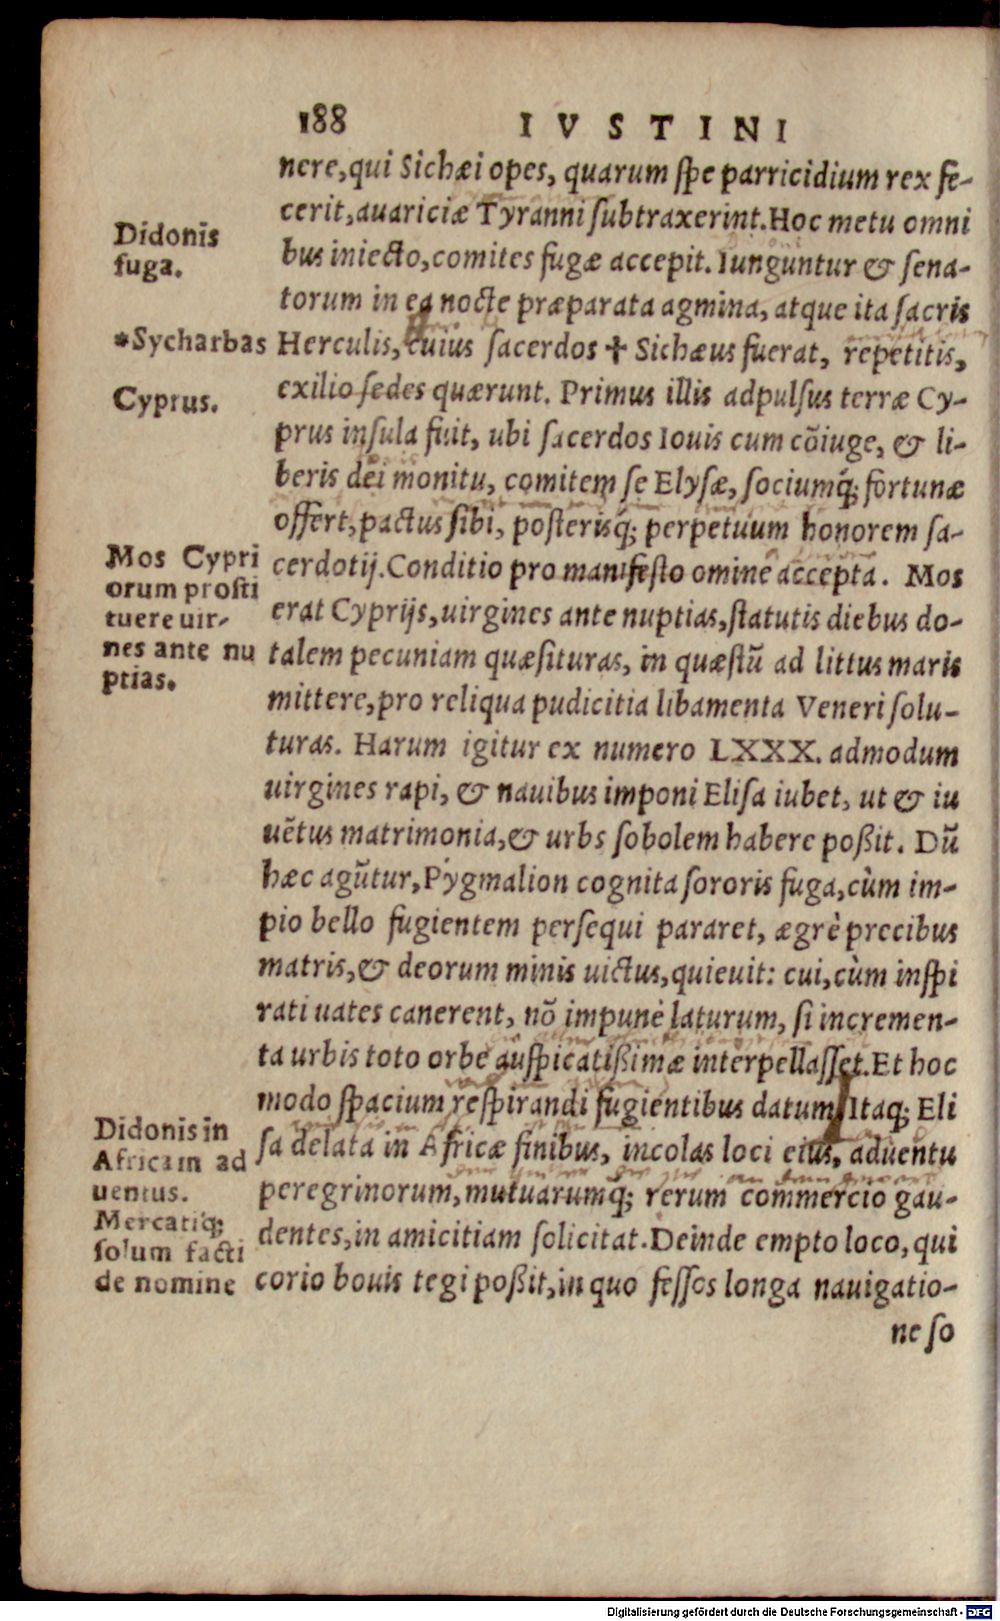 188 IVSTINI
nere, qui Sichæi opes, quarum ſpe parricidium rex fe-
cerit, auariciæ Tyranni ſubtraxerint. Hoc metu omni
Didonis
fuga.
bus iniecto, comites fugæ accepit. Iunguntur & ſena-
torum in ea nocte præparata agmina, atque ita ſacris
*Sycharbas
Herculis, cuius ſacerdos ✢ Sichæus fuerat, repetitis,
Cyprus.
exilio ſedes quærunt. Primus illis adpulſus terræ Cy-
prus inſula fuit, ubi ſacerdos Iouis cum cõiuge, & li-
beris dei monitu, comitem ſe Elyſæ, ſociumq́; fortunæ
offert, pactus ſibi, poſterisq́; perpetuum honorem ſa-
Mos Cypri
orum proſti
tuere uir-
nes ante nu
ptias.
cerdotij. Conditio pro manifeſto omine accepta. Mos
erat Cyprijs, uirgines ante nuptias, ſtatutis diebus do-
talem pecuniam quæſituras, in quæſtũ ad littus maris
mittere, pro reliqua pudicitia libamenta Veneri ſolu-
turas. Harum igitur ex numero LXXX. admodum
uirgines rapi, & nauibus imponi Eliſa iubet, ut & iu
uẽtus matrimonia, & urbs ſobolem habere poßit. Dũ
hæc agũtur, Pygmalion cognita ſororis fuga, cùm im-
pio bello fugientem perſequi pararet, ægrè precibus
matris, & deorum minis uictus, quieuit: cui, cùm inſpi
rati uates canerent, nõ impunè laturum, ſi incremen-
ta urbis toto orbe auſpicatißimæ interpellaſſet. Et hoc
modo ſpacium reſpirandi fugientibus datum. Itaq; Eli
Didonis in
Africam ad
uentus.
Mercatiq́;
ſolum facti
de nomine
ſa delata in Africæ finibus, incolas loci eius, aduentu
peregrinorum, mutuarumq́; rerum commercio gau-
dentes, in amicitiam ſolicitat. Deinde empto loco, qui
corio bouis tegi poßit, in quo feſſos longa nauigatio-
ne ſo
Digitalisierung gefördert durch die Deutsche Forschungsgemeinschaft - DFG